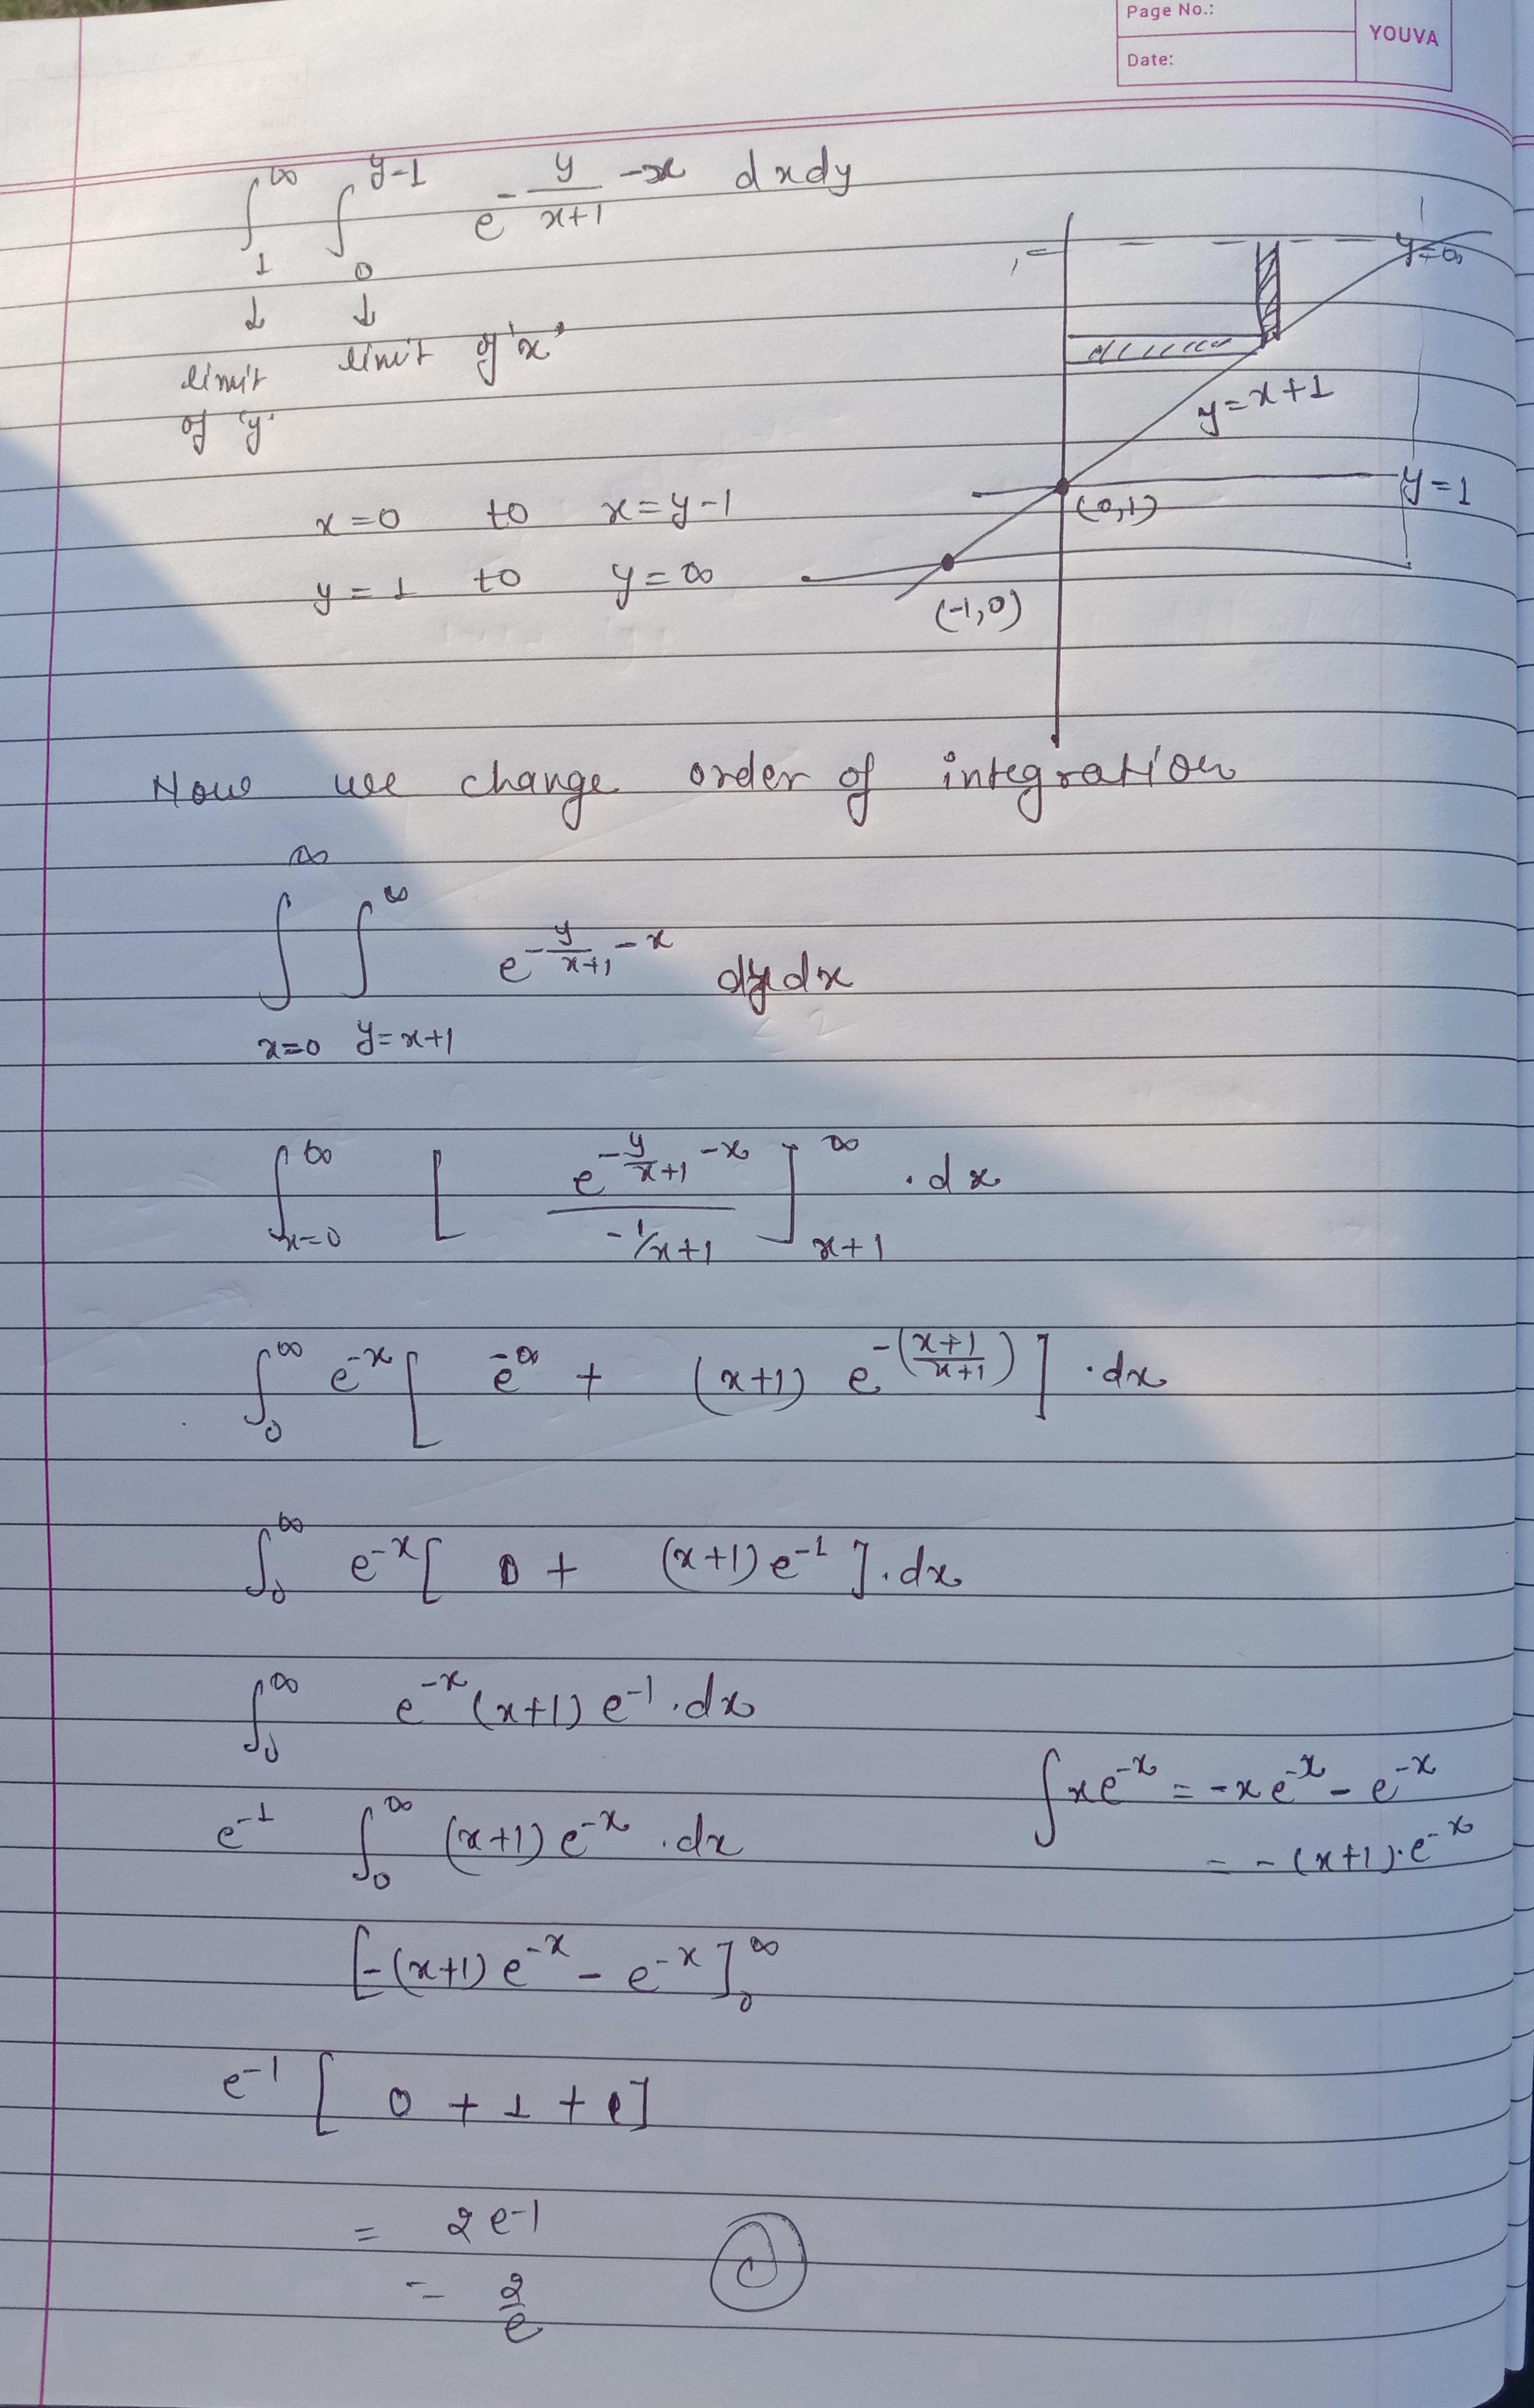 Page No.:
YOUVA
Date:
∫₁^∞ ∫₀^(y-1) e^(-y/(x+1) - x) dx dy
↓ ↓
limit of 'y' limit of 'x'
y=∞
y=x+1
x=0 to x=y-1
y=1
(0,1)
y=1 to y=∞
(-1,0)
Now we change order of integration
∫_(x=0)^∞ ∫_(y=x+1)^∞ e^(-y/(x+1) - x) dy dx
∫_(x=0)^∞ [ e^(-y/(x+1) - x) / (-1/x+1) ]_(x+1)^∞ . dx
∫₀^∞ e^(-x) [ e^(-∞) + (x+1) e^(-((x+1)/(x+1))) ] . dx
∫₀^∞ e^(-x) [ 0 + (x+1) e^(-1) ] . dx
∫₀^∞ e^(-x) (x+1) e^(-1) . dx
e^(-1) ∫₀^∞ (x+1) e^(-x) . dx
∫ x e^(-x) = -x e^(-x) - e^(-x)
= -(x+1).e^(-x)
[ -(x+1) e^(-x) - e^(-x) ]₀^∞
e^(-1) [ 0 + 1 + 1 ]
= 2 e^(-1)
= 2/e